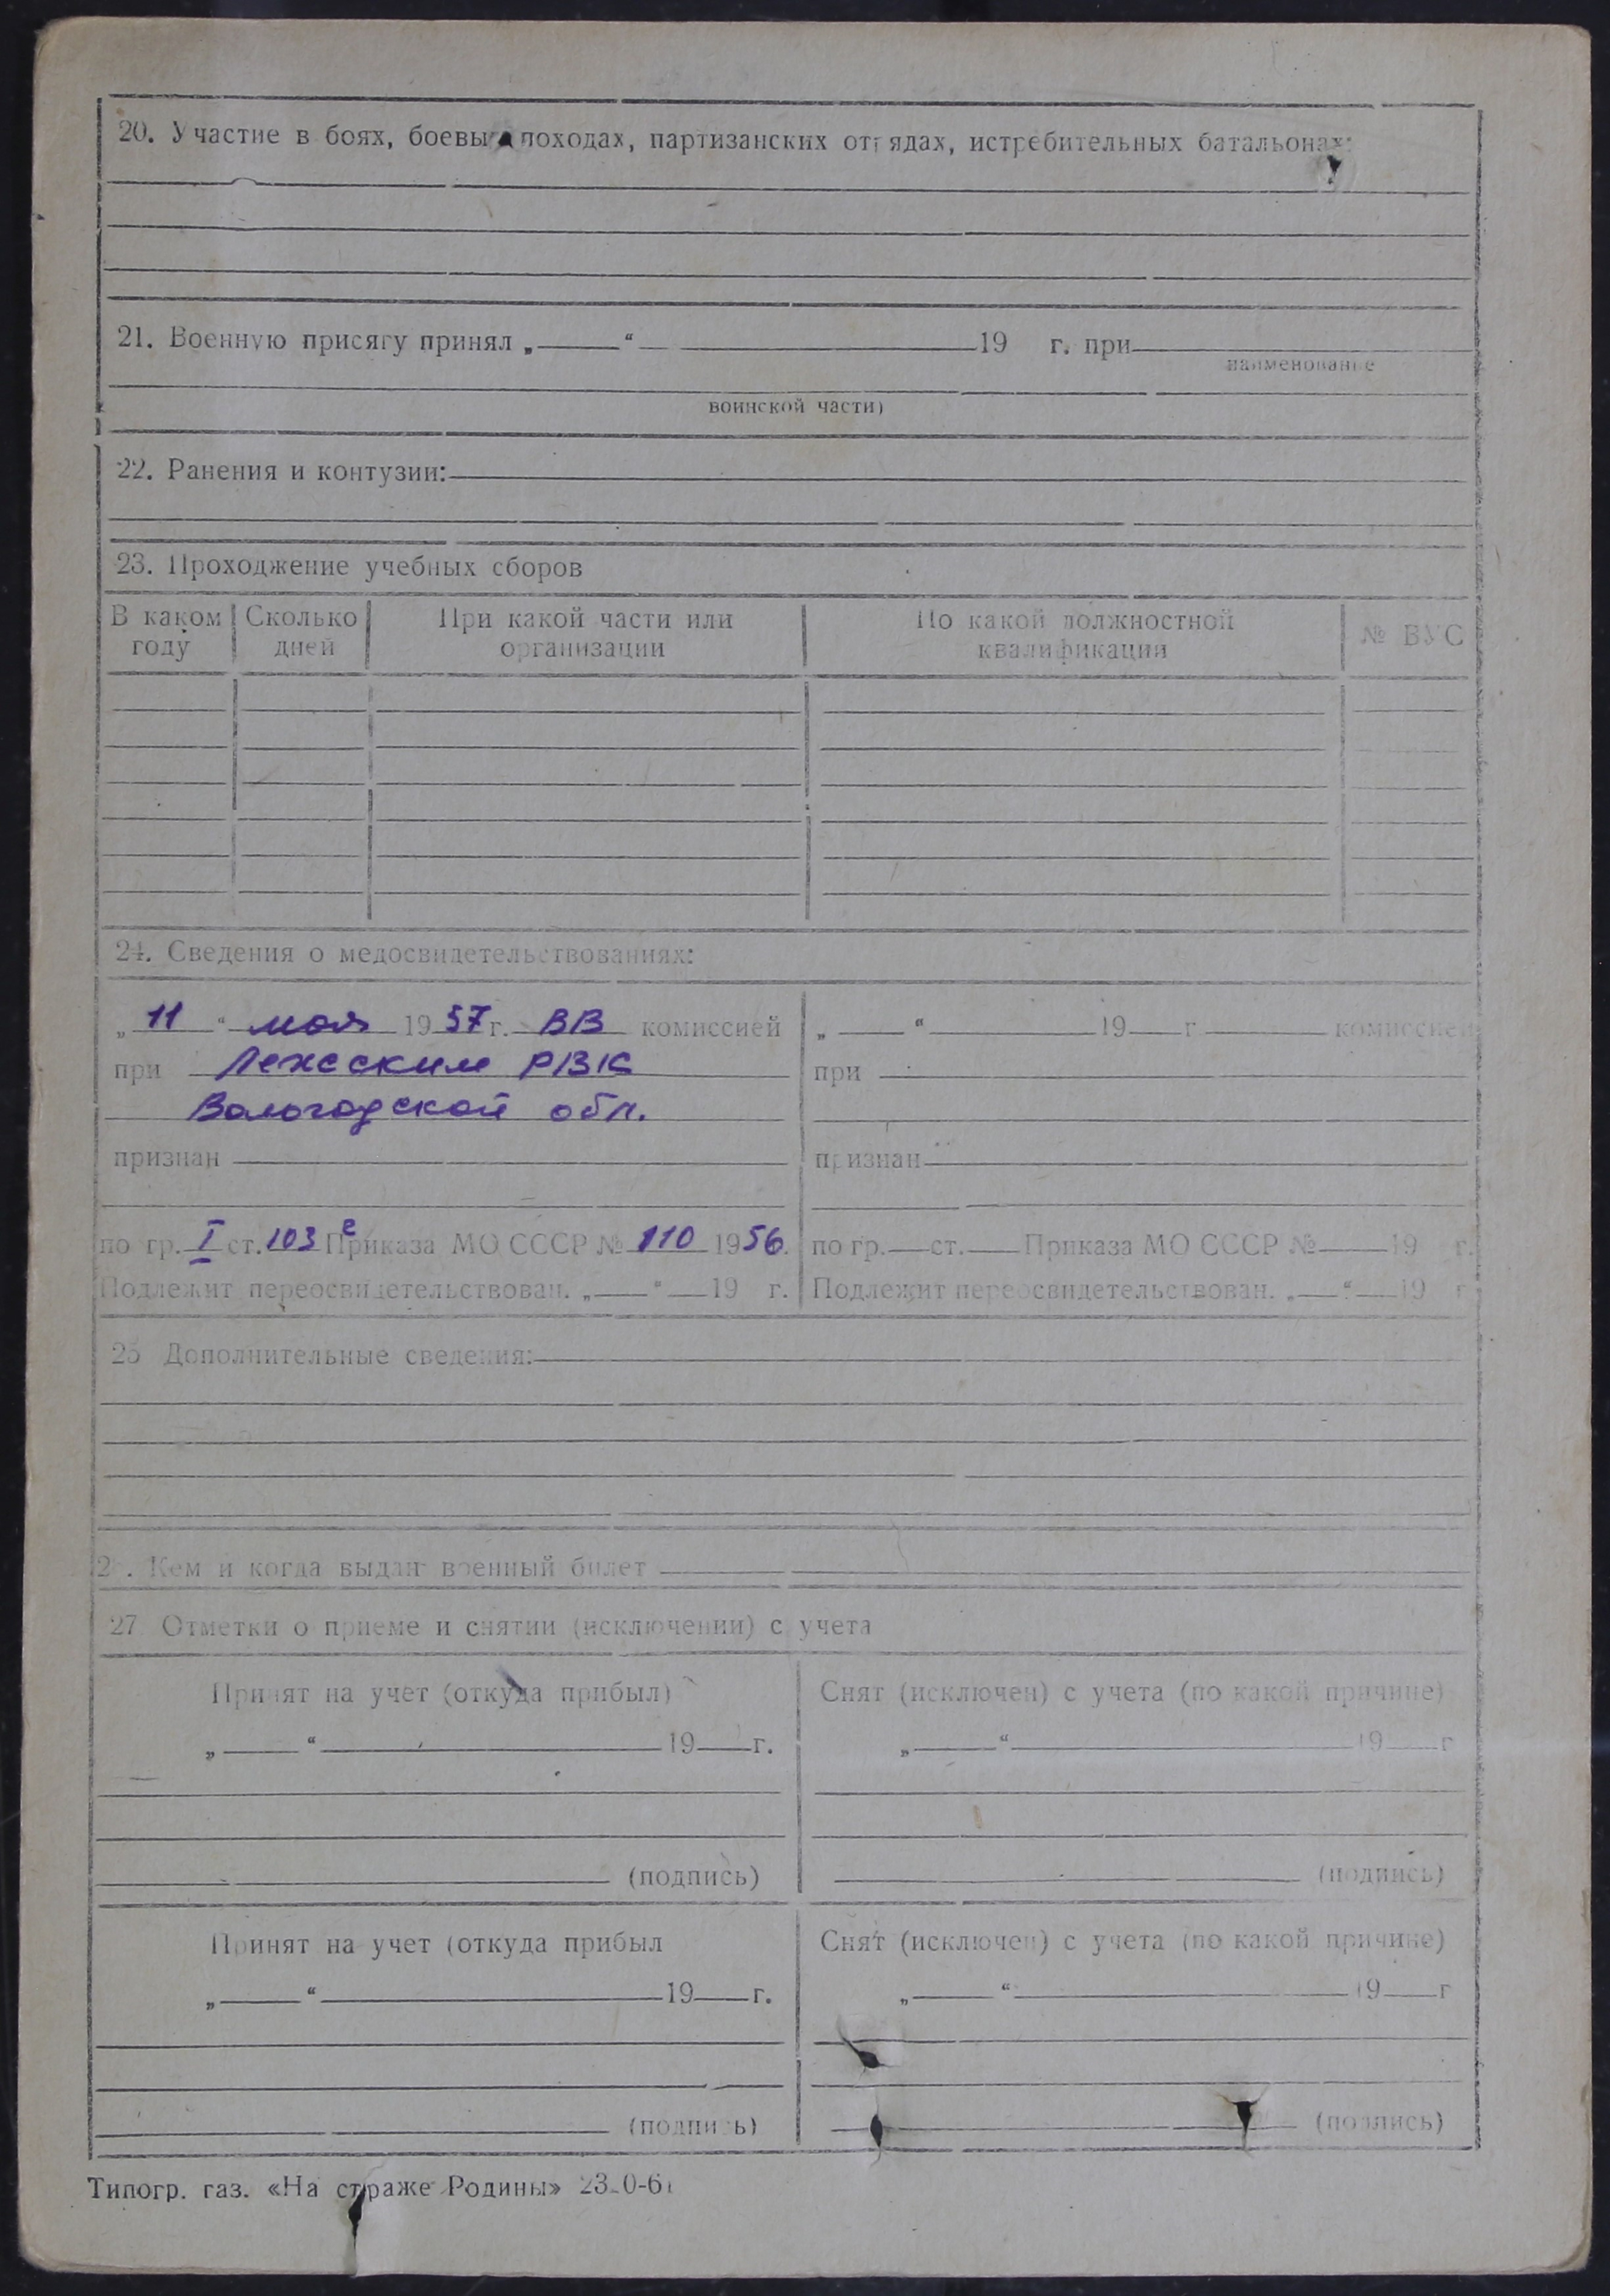 20. Участие в боях, боевы походах, партизанских отрядах, истребительных батальонах:
21. Военную присягу принял „ “ 19 г. при
наименование
воинской части)
22. Ранения и контузии:
23. Проходжение учебных сборов
В каком году Сколько дней При какой части или организации По какой должностной квалификации № ВУС
24. Сведения о медосвидетельствованиях:
„ 11 “ мая 19 57 г. ВВ комиссией
при Лежским РВК
Вологодской обл.
признан
по гр. I ст. 103 г Приказа МО СССР № 110 1956.
Подлежит переосвидетельствован. „ “ 19 г.
„ “ 19 г. комиссией
при
признан
по гр. ст. Приказа МО СССР № 19 г.
Подлежит переосвидетельствован. „ “ 19 г
25 Дополнительные сведения:
2 . Кем и когда выдан военный билет
27 Отметки о приеме и снятии (исключении) с учета
Принят на учет (откуда прибыл)
„ “ 19 г.
(подпись)
Снят (исключен) с учета (по какой причине)
„ “ 19 г
(подпись)
Принят на учет (откуда прибыл
„ “ 19 г.
(подпись)
Снят (исключен) с учета (по какой причине)
„ “ 19 г
(подпись)
Типогр. газ. «На страже Родины»